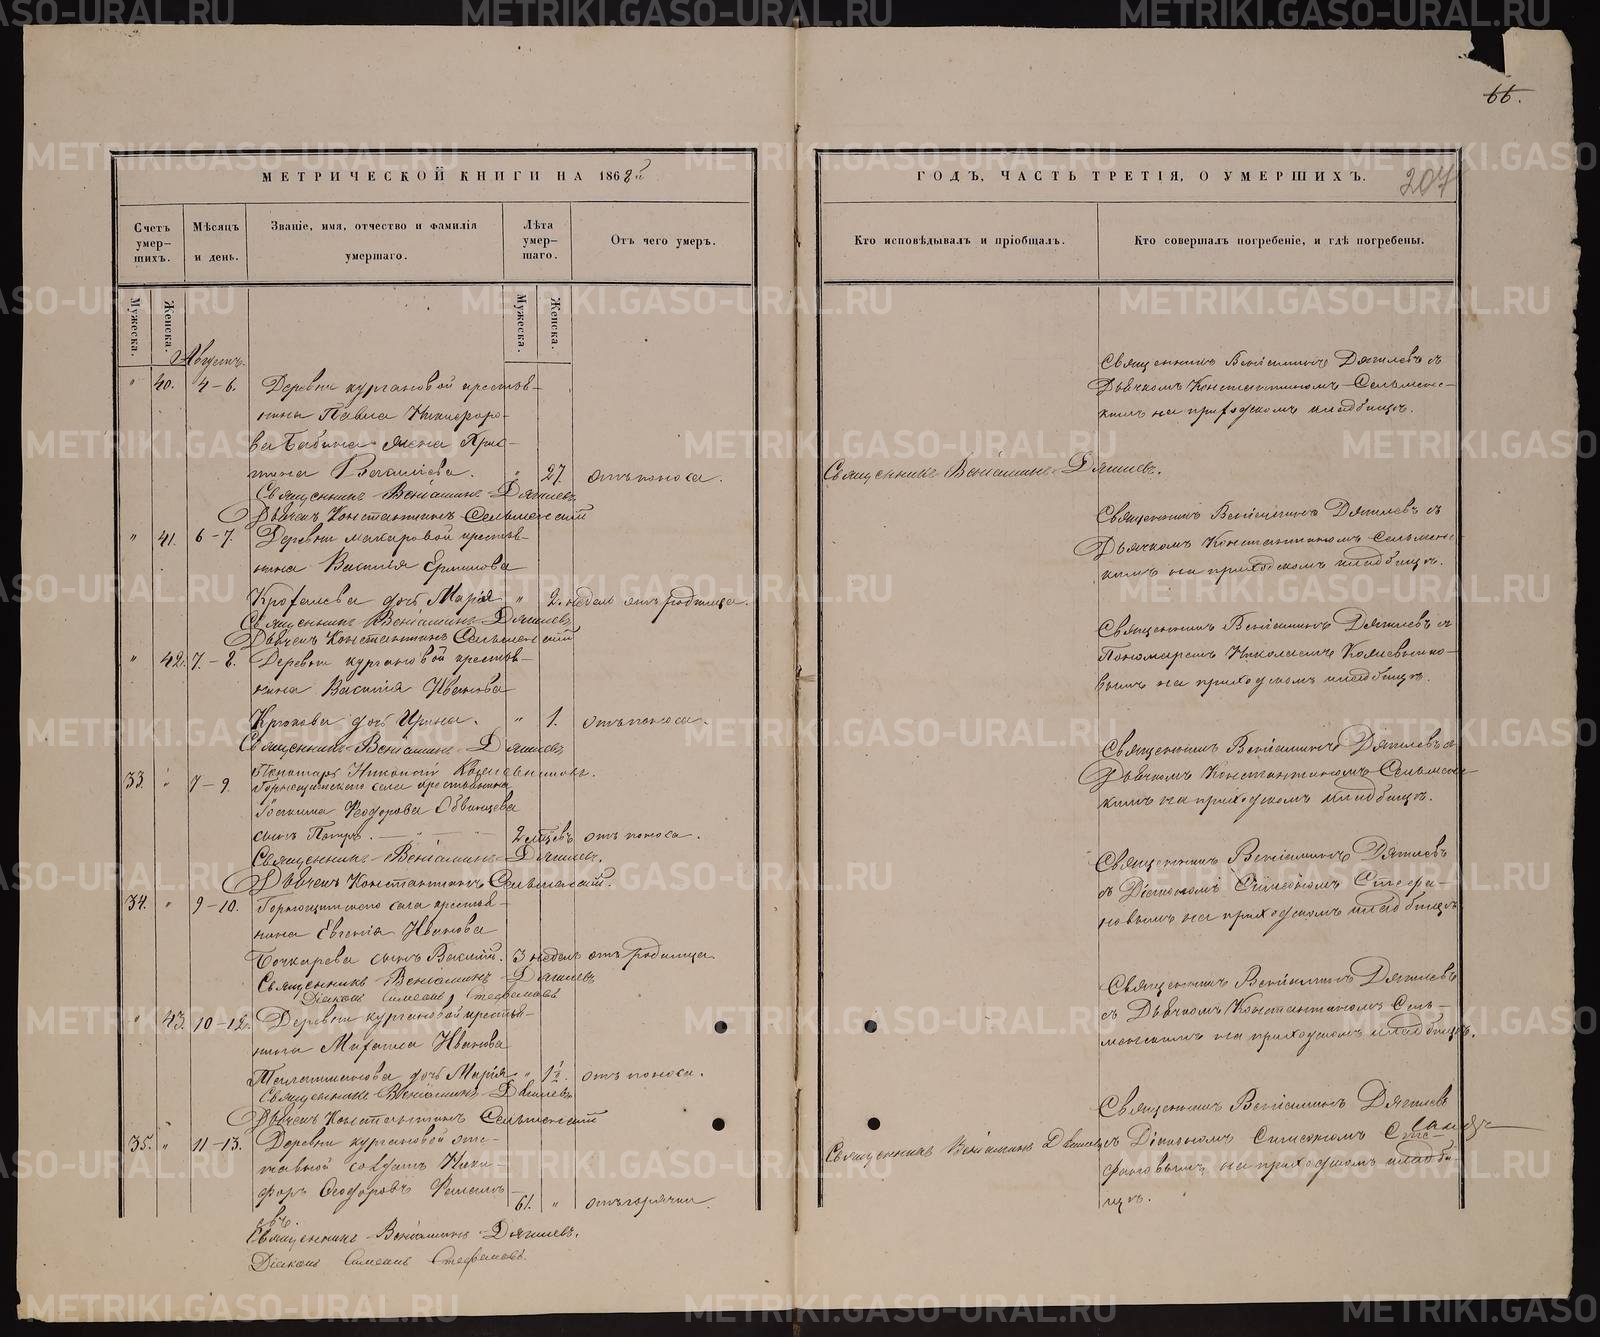 66.
МЕТРИЧЕСКОЙ КНИГИ НА 1868й
ГОДЪ, ЧАСТЬ ТРЕТІЯ, О УМЕРШИХЪ.
207
Счетъ умер-шихъ.
Мѣсяцъ и день.
Званіе, имя, отчество и фамилія умершаго.
Лѣта умер-шаго.
Отъ чего умеръ.
Кто исповѣдывалъ и пріобщалъ.
Кто совершалъ погребеніе, и гдѣ погребены.
Мужеска.
Женска.
Мужеска.
Женска.
Августъ.
" 40. 4-6. Деревни кургановой крестья-
нина Павла Никифоро-
ва Бабина жена Хрис-
тина " 27. отъ поноса.
Священникъ Веніаминъ Дягилевъ
Дьячекъ Константинъ Сельменскій
Священникъ Веніаминъ Дягилевъ.
Священникъ Веніаминъ Дягилевъ съ
Дьячкомъ Константиномъ Сельменс-
кимъ на приходскомъ кладбищѣ.
" 41. 6-7. Деревни макаровой крестья-
нина Василія Ермилова
дочь Марія " 2. недель отъ родимца.
Священникъ Веніаминъ Дягилевъ
Дьячекъ Константинъ Сельменскій
Священникъ Веніаминъ Дягилевъ съ
Дьячкомъ Константиномъ Сельменс-
кимъ на приходскомъ кладбищѣ.
" 42. 7-8. Деревни кургановой крестья-
нина Василія Иванова
Крюкова дочь Ирина. " 1. отъ поноса.
Священникъ Веніаминъ Дягилевъ
Пономарь Николай
Священникъ Веніаминъ Дягилевъ съ
Пономаремъ Николаемъ
вымъ на приходскомъ кладбищѣ.
33. " 7-9. Горнощитскаго села крестьянина
Феодорова Обвинцева
сынъ Петръ. " 2 мѣсяцевъ отъ поноса.
Священникъ Веніаминъ Дягилевъ.
Дьячекъ Константинъ Сельменскій.
Священникъ Веніаминъ Дягилевъ съ
Дьячкомъ Константиномъ Сельменс-
кимъ на приходскомъ кладбищѣ.
34. " 9-10. Горнощитскаго села крестья-
нина Евгенія Иванова
Бочкарева сынъ Василій. 3 недель отъ родимца.
Священникъ Веніаминъ Дягилевъ
Діаконъ Симеонъ Стефановъ
Священникъ Веніаминъ Дягилевъ
съ Діакономъ Симеономъ Стефа-
новымъ на приходскомъ кладбищѣ.
" 43. 10-12. Деревни кургановой крестья-
нина Михаила Иванова
Талашманова дочь Марія " 1½. отъ поноса.
Священникъ Веніаминъ Дягилевъ
Дьячекъ Константинъ Сельменскій
Священникъ Веніаминъ Дягилевъ
съ Дьячкомъ Константиномъ Сель-
менскимъ на приходскомъ кладбищѣ.
35. " 11-13. Деревни кургановой отс-
тавной солдатъ Ники-
форъ Феодоровъ
61. " отъ горячки.
Священникъ Веніаминъ Дягилевъ.
Діаконъ Симеонъ Стефановъ.
Священникъ Веніаминъ Дягилевъ
Священникъ Веніаминъ Дягилевъ
съ Діакономъ Симеономъ Сте-
фановымъ на приходскомъ кладби-
щѣ.
METRIKI.GASO-URAL.RU